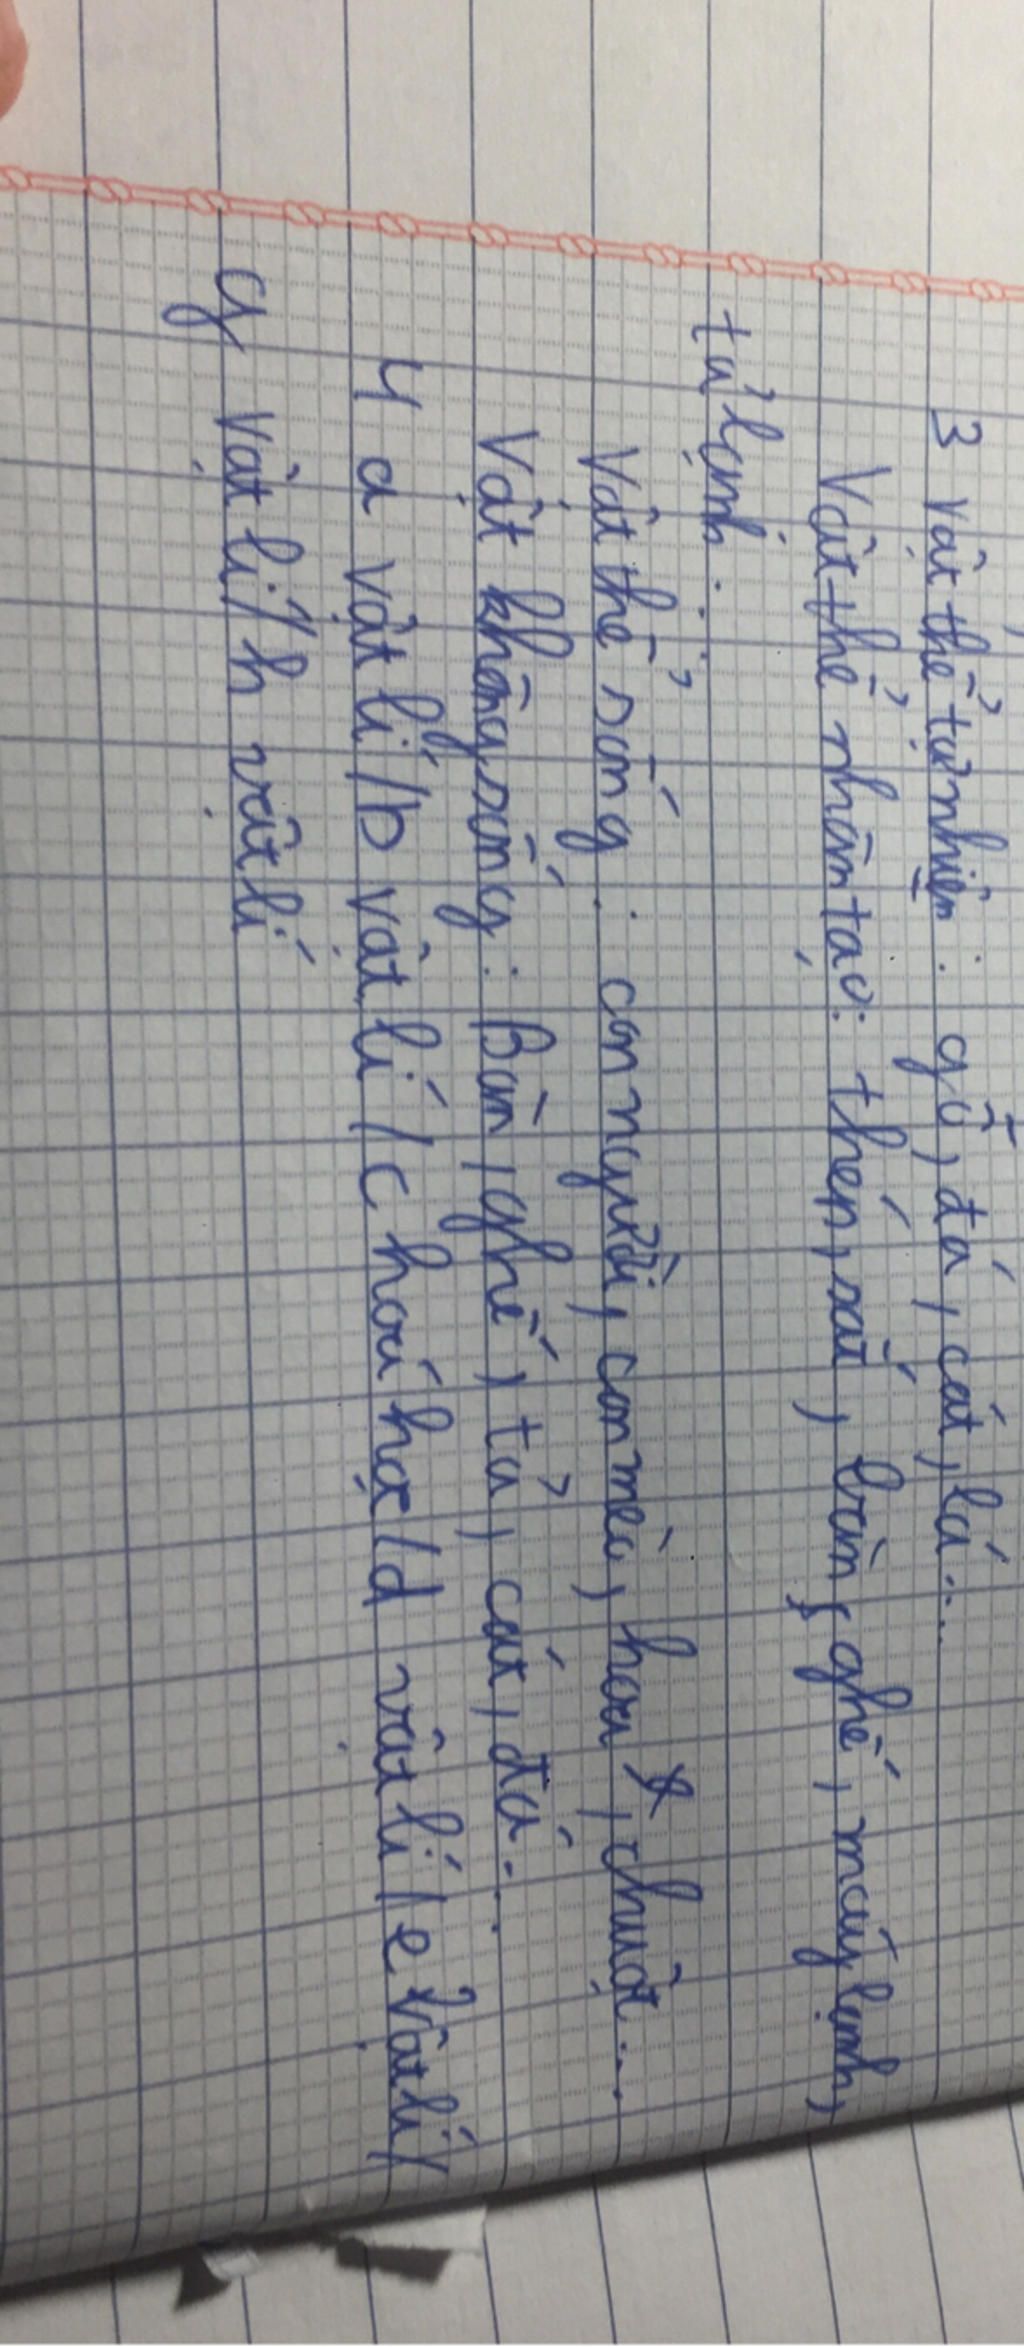 3 Vật thể tự nhiên : gỗ, đá, cát, lá...
Vật thể nhân tạo: thép, sắt, bàn, ghế, máy lạnh,
tủ lạnh...
Vật thể sống : con người, con mèo, hoa, chuột...
Vật không sống : Bàn, ghế, tủ, cát, đá...
4 a vật lí / b vật lí / c hoá học / d vật lí / e vật lí /
g vật lí / h vật lí